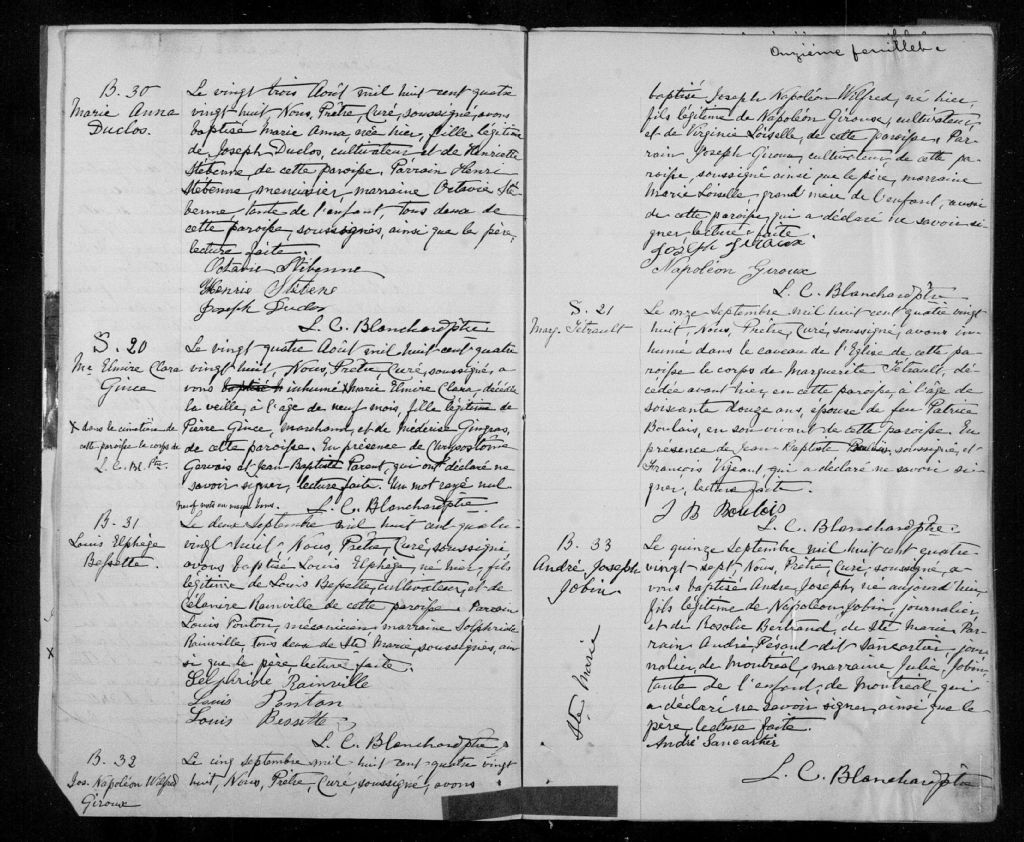 B. 30
Marie Anna
Duclos.
Le vingt trois Août mil huit cent quatre
vingt huit, Nous, Prêtre, Curé, soussigné, avons
baptisé Marie Anna, née hier, fille légitime
de Joseph Duclos, cultivateur et de Henriette
Stébenne, de cette paroisse. Parrain Henri
Stébenne, menuisier, marraine Octavie Sté-
benne, tante de l'enfant, tous deux de
cette paroisse, soussignés, ainsi que le père,
lecture faite.
Octavie Stébenne
Henrie Stébene
Joseph Duclos
L. C. Blanchard ptre
S. 20
Me Elmire Clara
Gince
Le vingt quatre Août mil huit cent quatre
vingt huit, Nous, Prêtre, Curé, soussigné, a
vons baptisé inhumé x Marie Elmire Clara, décédée
la veille, à l'âge de neuf mois, fille légitime de
Pierre Gince, marchand, et de Médérise Gingras,
de cette paroisse. En présence de Chrysostôme
Gervais et Jean-Baptiste Parent, qui ont déclaré ne
savoir signer, lecture faite. Un mot rayé nul
neuf mots en marge bons. L. C. Blanchard ptre.
x dans le cimetière de
cette paroisse le corps de
L. C. Bl. Ptre
B. 31
Louis Elphège
Bessette.
Le deux Septembre mil huit cent quatre
vingt huit, Nous, Prêtre, Curé, soussigné
avons baptisé Louis Elphège, né hier, fils
légitime de Louis Bessette, cultivateur, et de
Célanire Rainville de cette paroisse. Parrain
Louis Ponton, mécanicien, marraine Dolphride
Rainville, tous deux de Ste Marie, soussignés, ain
si que le père, lecture faite.
Delphride Rainville
Louis Ponton
Louis Bessette
L. C. Blanchard Ptre
x
B. 32
Jos. Napoléon Wilfred
Giroux
Le cinq septembre mil huit cent quatre vingt
huit, Nous, Prêtre, Curé, soussigné, avons
Onzième feuillet.
baptisé Joseph Napoléon Wilfred, né hier,
fils légitime de Napoléon Giroux, cultivateur,
et de Virginie Loiselle, de cette paroisse, Par-
rain Joseph Giroux, cultivateur, de cette pa-
roisse soussigné ainsi que le père, marraine
Marie Loiselle, grand'mère de l'enfant, aussi
de cette paroisse, qui a déclaré ne savoir si-
gner lecture faite.
Joseph Giroux.
Napoléon Giroux
L. C. Blanchard ptre
S. 21
Marg. Tétrault
Le onze Septembre mil huit cent quatre vingt
huit, Nous, Prêtre, Curé, soussigné, avons in-
humé dans le caveau de l'Eglise de cette pa-
roisse le corps de Marguerite Tétrault, dé-
cédée avant hier, en cette paroisse, à l'âge de
soixante douze ans, épouse de feu Patrice
Boulais, en son vivant de cette paroisse. En
présence de Jean-Baptiste Boulais, soussigné, et
François Vigeant qui a déclaré ne savoir si-
gner, lecture faite.
J B Boulois
L. C. Blanchard ptre.
B. 33
André Joseph
Jobin.
Ste Marie
Le quinze Septembre mil huit cent quatre
vingt sept Nous, Prêtre, Curé, soussigné, a-
vons baptisé André Joseph, né aujourd'hui,
fils légitime de Napoléon Jobin, journalier,
et de Rosalie Bertrand, de Ste Marie, Par-
rain André dit Sancartier, jour-
nalier, de Montréal, marraine Julie Jobin,
tante de l'enfant, de Montréal qui
a déclaré ne savoir signer, ainsi que le
père, lecture faite.
André Sancartier
L. C. Blanchard ptre